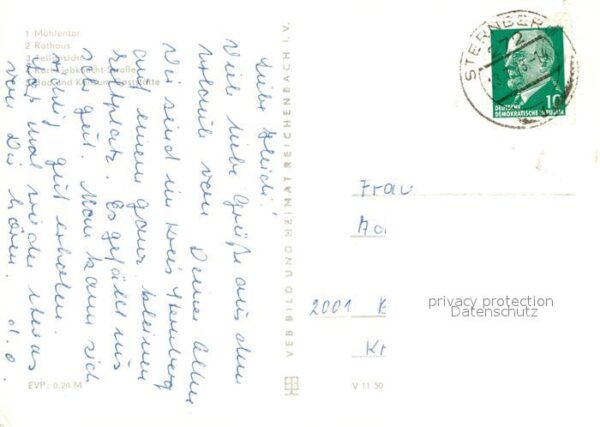 1 Mühlentor
2 Rathaus
3 Teilansicht
4 Karl-Liebknecht-Straße
5 Bad und Konsum-Gaststätte
Liebe Heidi!
Viele liebe Grüße aus dem
Urlaub von Deiner alten
Wir sind im Kreis Sternberg
auf einem ganz kleinen
Zeltplatz. Es gefällt uns
sehr gut. Man kann sich
richtig gut erholen.
Laß mal wieder etwas
von Dir hören.
EVP: 0,20 M
VEB BILD UND HEIMAT REICHENBACH I. V.
V 11 50
STERNBERG
272
DEUTSCHE
DEMOKRATISCHE REPUBLIK
10
Frau
2001
privacy protection
Datenschutz